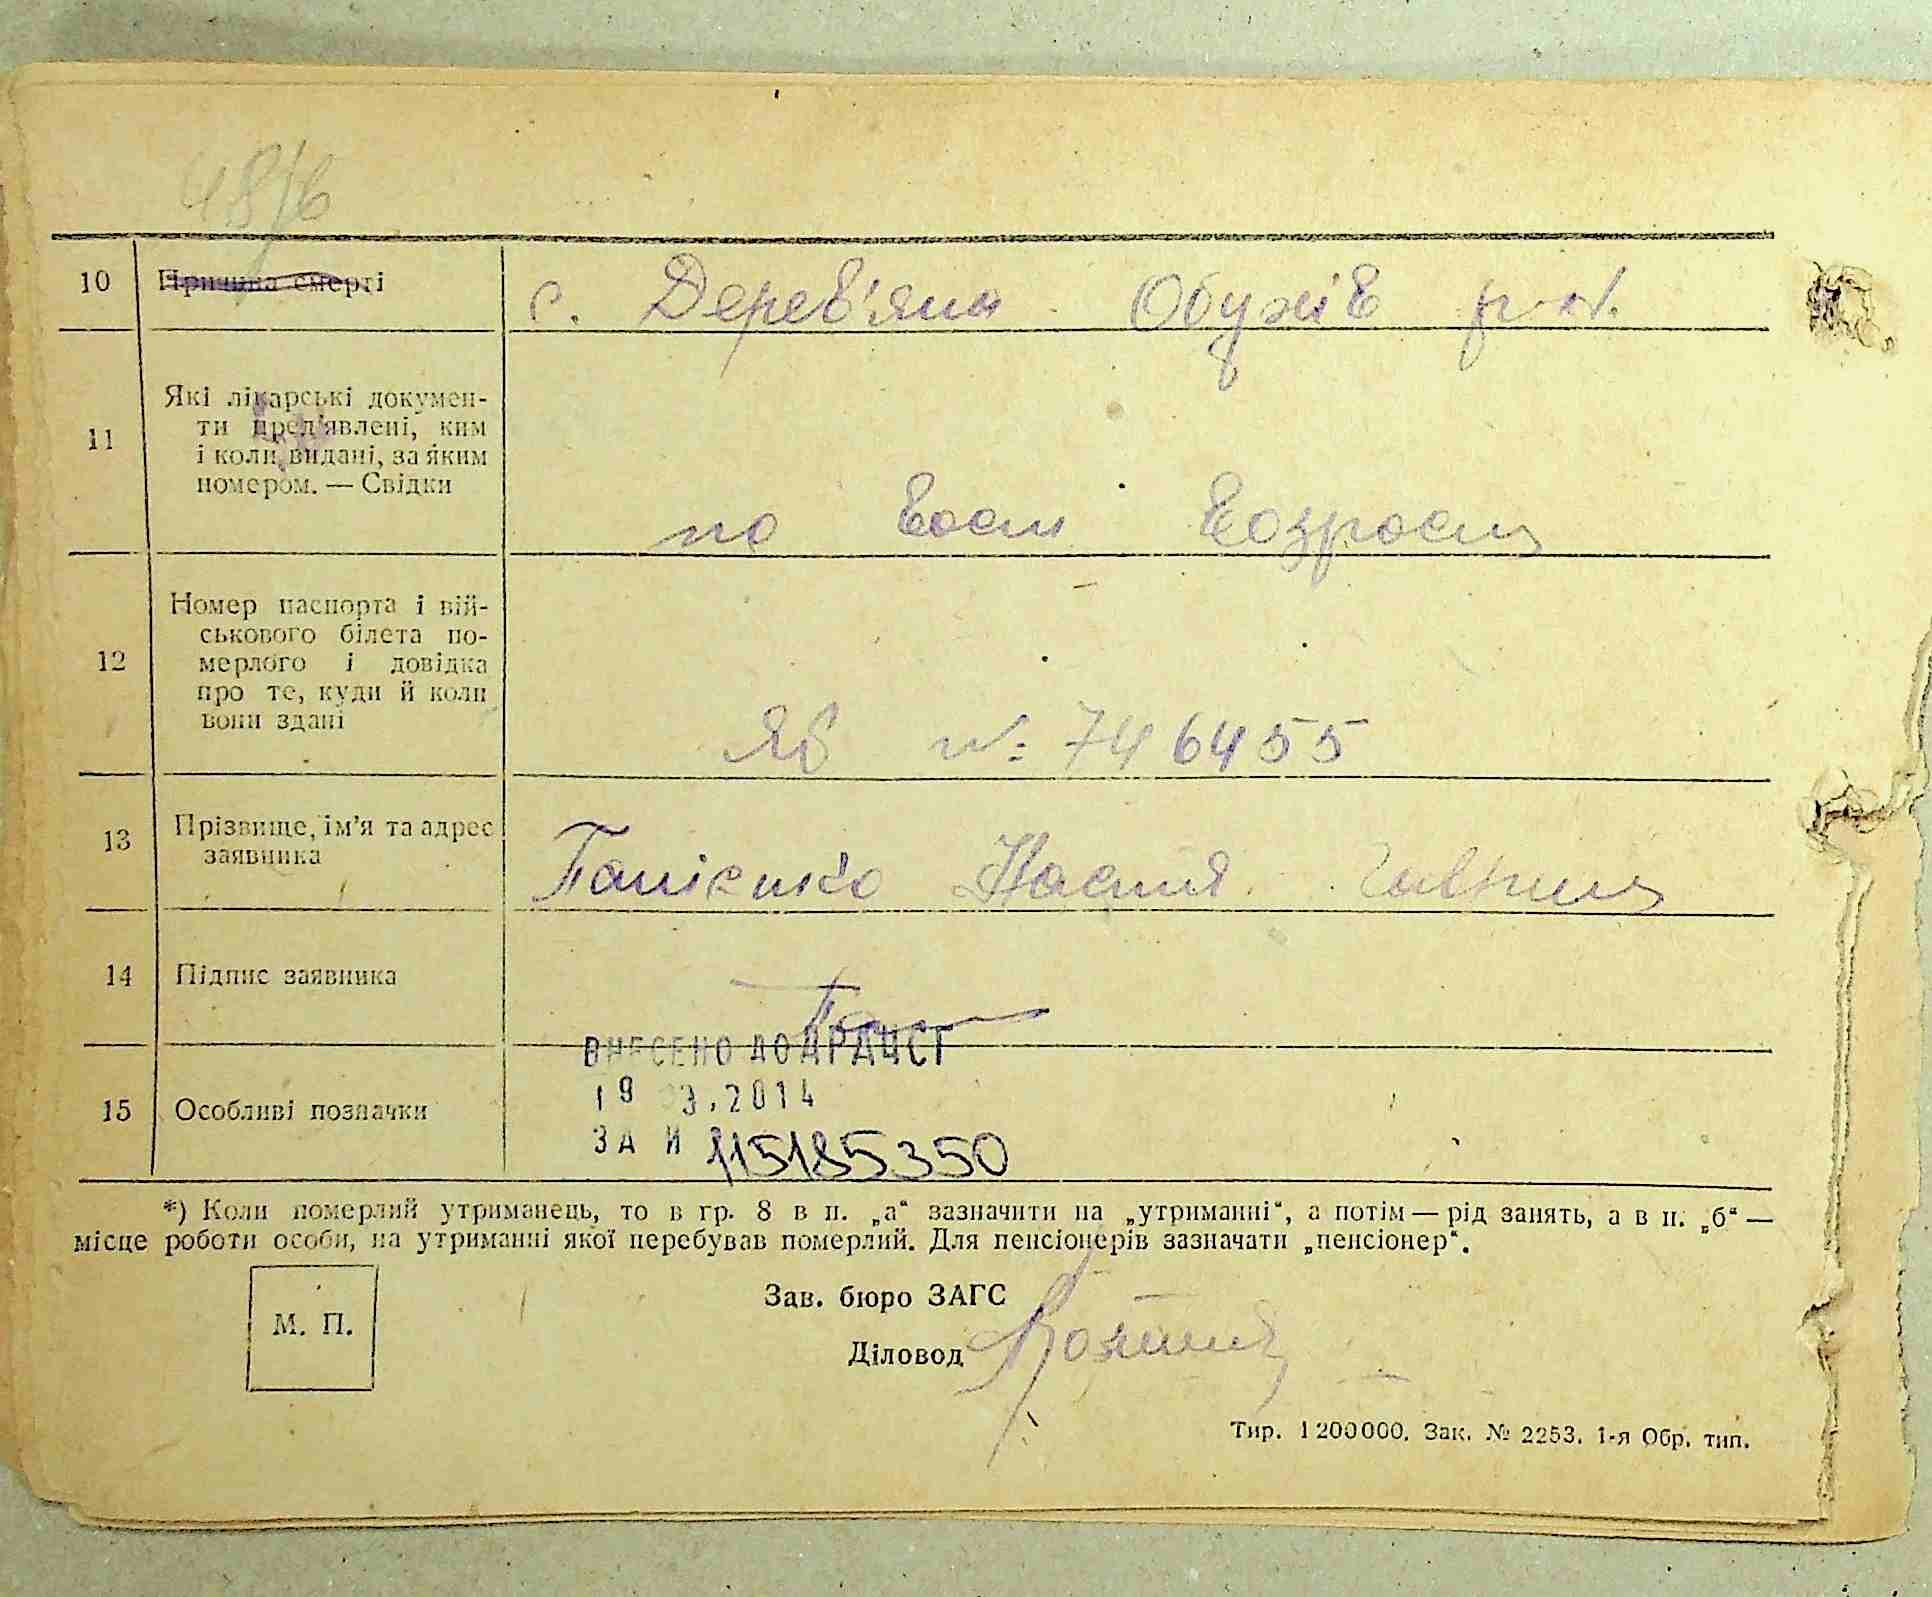 48/в
10 Причина смерті с. Дерев'яна Обухів р-н.
11 Які лікарські докумен-
ти пред'явлені, ким
і коли видані, за яким
номером. — Свідки
по
12 Номер паспорта і вій-
ськового білета по-
мерлого і довідка
про те, куди й коли
вони здані
№: 746455
13 Прізвище, ім'я та адрес
заявника
Настя
14 Підпис заявника
ВНЕСЕНО ДО ДРАЦСГ
15 Особливі позначки
19 3.2014
ЗА № 115185350
*) Коли померлий утриманець, то в гр. 8 в п. „а“ зазначити на „утриманні“, а потім — рід занять, а в п. „б“ —
місце роботи особи, на утриманні якої перебував померлий. Для пенсіонерів зазначати „пенсіонер“.
М. П.
Зав. бюро ЗАГС
Діловод
Тир. 1 200 000. Зак. № 2253. 1-я Обр. тип.